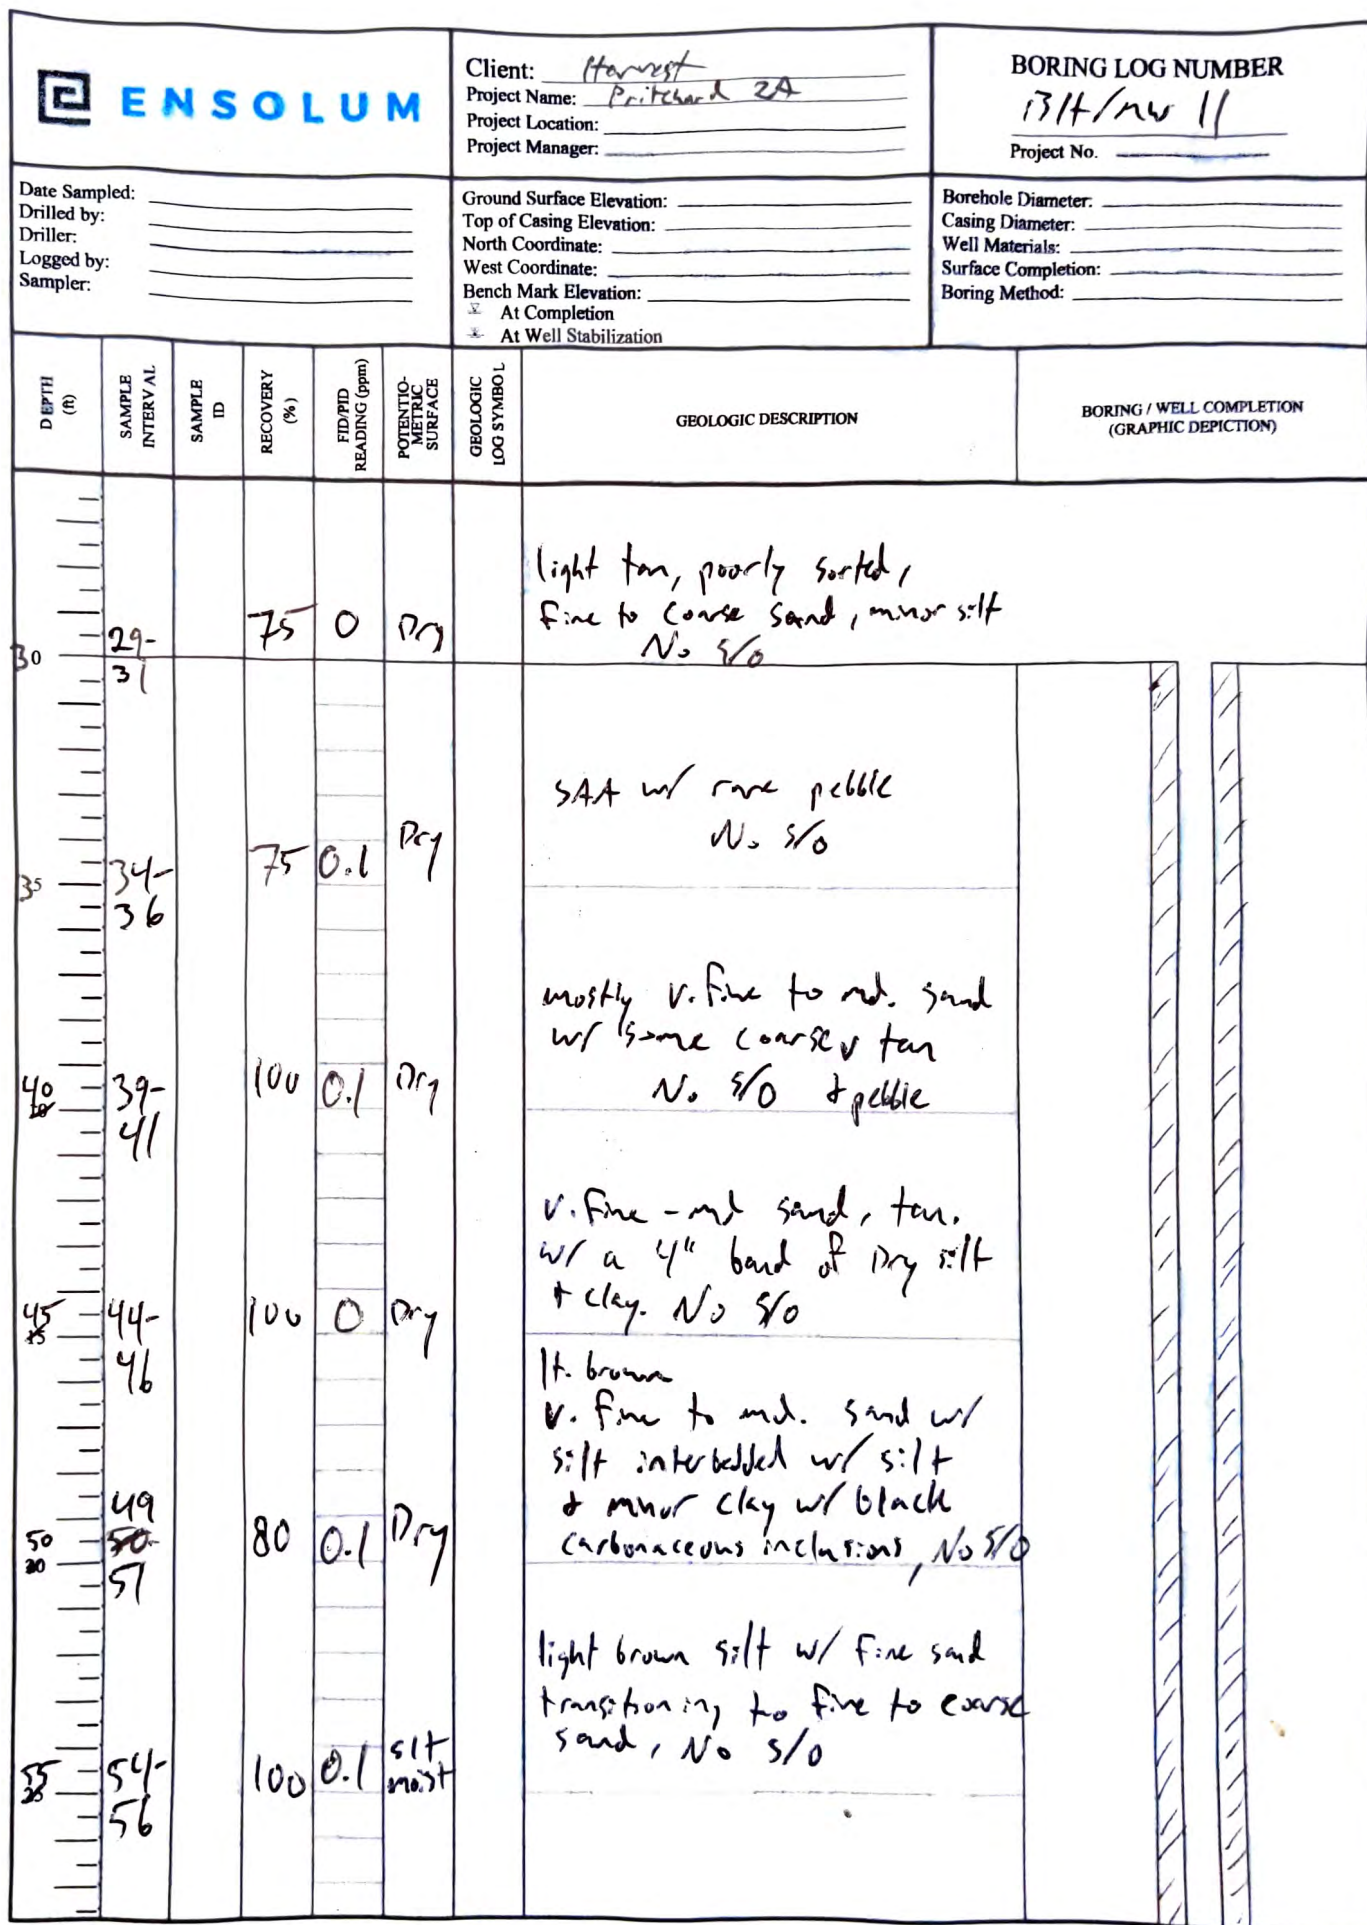 ENSOLUM
Client: Harvest
Project Name: Pritchard 2A
Project Location:
Project Manager:
BORING LOG NUMBER
BH/mw 11
Project No.
Date Sampled:
Drilled by:
Driller:
Logged by:
Sampler:
Ground Surface Elevation:
Top of Casing Elevation:
North Coordinate:
West Coordinate:
Bench Mark Elevation:
At Completion
At Well Stabilization
Borehole Diameter:
Casing Diameter:
Well Materials:
Surface Completion:
Boring Method:
DEPTH
(ft)
SAMPLE
INTERVAL
SAMPLE
ID
RECOVERY
(%)
FID/PID
READING (ppm)
POTENTIO-
METRIC
SURFACE
GEOLOGIC
LOG SYMBOL
GEOLOGIC DESCRIPTION
BORING / WELL COMPLETION
(GRAPHIC DEPICTION)
light tan, poorly sorted,
fine to coarse sand, minor silt
29- 75 0 Dry
No S/O
30
31
SAA w/ rare pebble
No S/O
34- 75 0.1 Dry
35
36
mostly v. fine to md. sand
w/ some coarse, tan
40 39- 100 0.1 Dry No S/O + pebble
41
v. fine - md sand, tan.
w/ a 4" band of Dry silt
+ clay. No S/O
45 44- 100 0 Dry
15
46
lt. brown
v. fine to md. sand w/
silt interbedded w/ silt
+ minor clay w/ black
49
50 50- 80 0.1 Dry carbonaceous inclusions, No S/O
20
51
light brown silt w/ fine sand
transitioning to fine to coarse
sand, No S/O
55 54- 100 0.1 slt
moist
25
56